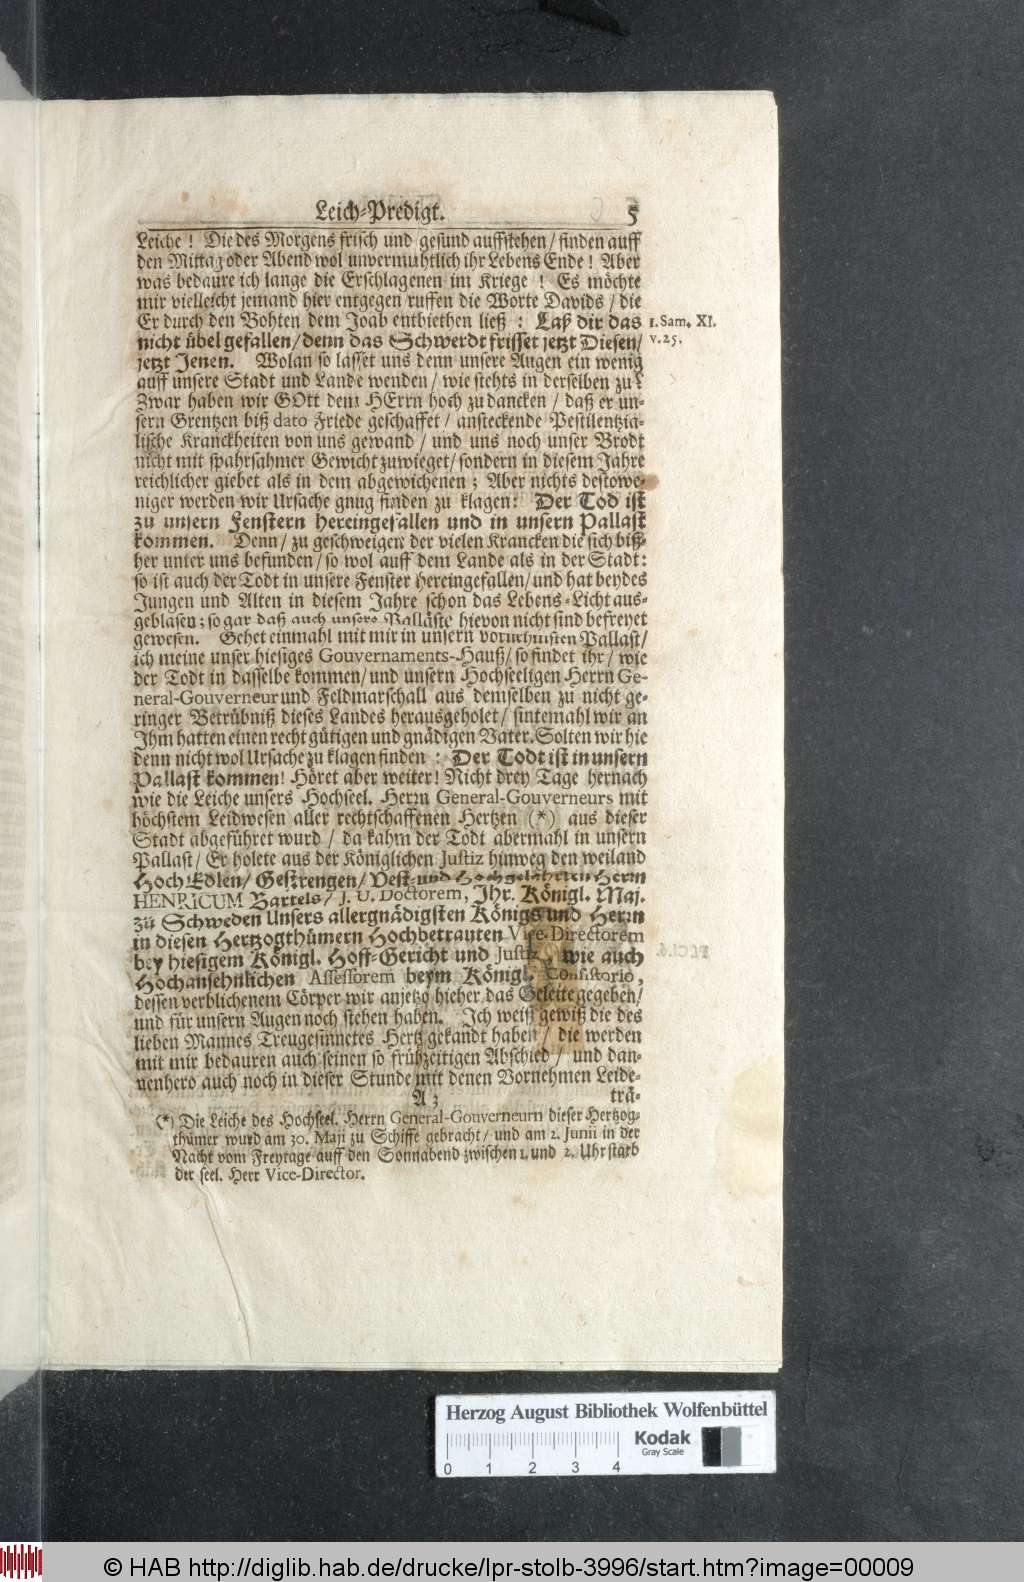 Leich-Predigt. 5
Leiche ! Die des Morgens frisch und gesund auffstehen / finden auff
den Mittag oder Abend wol unvermuhtlich ihr Lebens Ende ! Aber
was bedaure ich lange die Erschlagenen im Kriege ! Es möchte
mir vielleicht jemand hier entgegen ruffen die Worte Davids / die
Er durch den Bohten dem Joab entbiethen ließ : Laß dir das
1. Sam. XI.
nicht übel gefallen / denn das Schwerdt frisset jetzt Diesen /
v. 25.
jetzt Jenen. Wolan so lasset uns denn unsere Augen ein wenig
auff unsere Stadt und Lande wenden / wie stehts in derselben zu ?
Zwar haben wir GOtt dem HErrn hoch zu dancken / daß er un-
sern Grentzen biß dato Friede geschaffet / ansteckende Pestilentzia-
lische Kranckheiten von uns gewand / und uns noch unser Brodt
nicht mit spahrsahmer Gewicht zuwieget / sondern in diesem Jahre
reichlicher giebet als in dem abgewichenen ; Aber nichts destowe-
niger werden wir Ursache gnug finden zu klagen : Der Tod ist
zu unsern Fenstern hereingefallen und in unsern Pallast
kommen. Denn / zu geschweigen der vielen Krancken die sich biß-
her unter uns befunden / so wol auff dem Lande als in der Stadt :
so ist auch der Todt in unsere Fenster hereingefallen / und hat beydes
Jungen und Alten in diesem Jahre schon das Lebens-Licht aus-
geblasen ; so gar daß auch unsere Palläste hievon nicht sind befreyet
gewesen. Gehet einmahl mit mir in unsern vornehmsten Pallast /
ich meine unser hiesiges Gouvernaments-Hauß / so findet ihr / wie
der Todt in dasselbe kommen / und unsern Hochseeligen Herrn Ge-
neral-Gouverneur und Feldmarschall aus demselben zu nicht ge-
ringer Betrübniß dieses Landes herausgeholet / sintemahl wir an
Ihm hatten einen recht gütigen und gnädigen Vater. Solten wir hie
denn nicht wol Ursache zu klagen finden : Der Todt ist in unsern
Pallast kommen ! Höret aber weiter ! Nicht drey Tage hernach
wie die Leiche unsers Hochseel. Herrn General-Gouverneurs mit
höchstem Leidwesen aller rechtschaffenen Hertzen (*) aus dieser
Stadt abgeführet wurd / da kahm der Todt abermahl in unsern
Pallast / Er holete aus der Königlichen Justiz hinweg den weiland
Hoch Edlen / Gestrengen / Vest- und Hochgelahrten Herrn
HENRICUM Bartels / J. U. Doctorem, Ihr. Königl. Maj.
zu Schweden Unsers allergnädigsten Königs und Herrn
in diesen Hertzogthümern Hochbetrauten Vice-Directorem
bey hiesigem Königl. Hoff-Gericht und Justiz, wie auch
Hochansehnlichen Assessorem beym Königl. Consistorio,
dessen verblichenem Cörper wir anjetzo hieher das Geleite gegeben /
und für unsern Augen noch stehen haben. Ich weiß gewiß die des
lieben Mannes Treugesinnetes Hertz gekandt haben / die werden
mit mir bedauren auch seinen so frühzeitigen Abschied / und dan-
nenhero auch noch in dieser Stunde mit denen Vornehmen Leide-
A 3 trä-
(*) Die Leiche des Hochseel. Herrn General-Gouverneurn dieser Hertzog-
thümer wurd am 30. Maji zu Schiffe gebracht / und am 2. Junii in der
Nacht vom Freytage auff den Sonnabend zwischen 1. und 2. Uhr starb
der seel. Herr Vice-Director.
Herzog August Bibliothek Wolfenbüttel
Kodak
Gray Scale
0 1 2 3 4
© HAB http://diglib.hab.de/drucke/lpr-stolb-3996/start.htm?image=00009